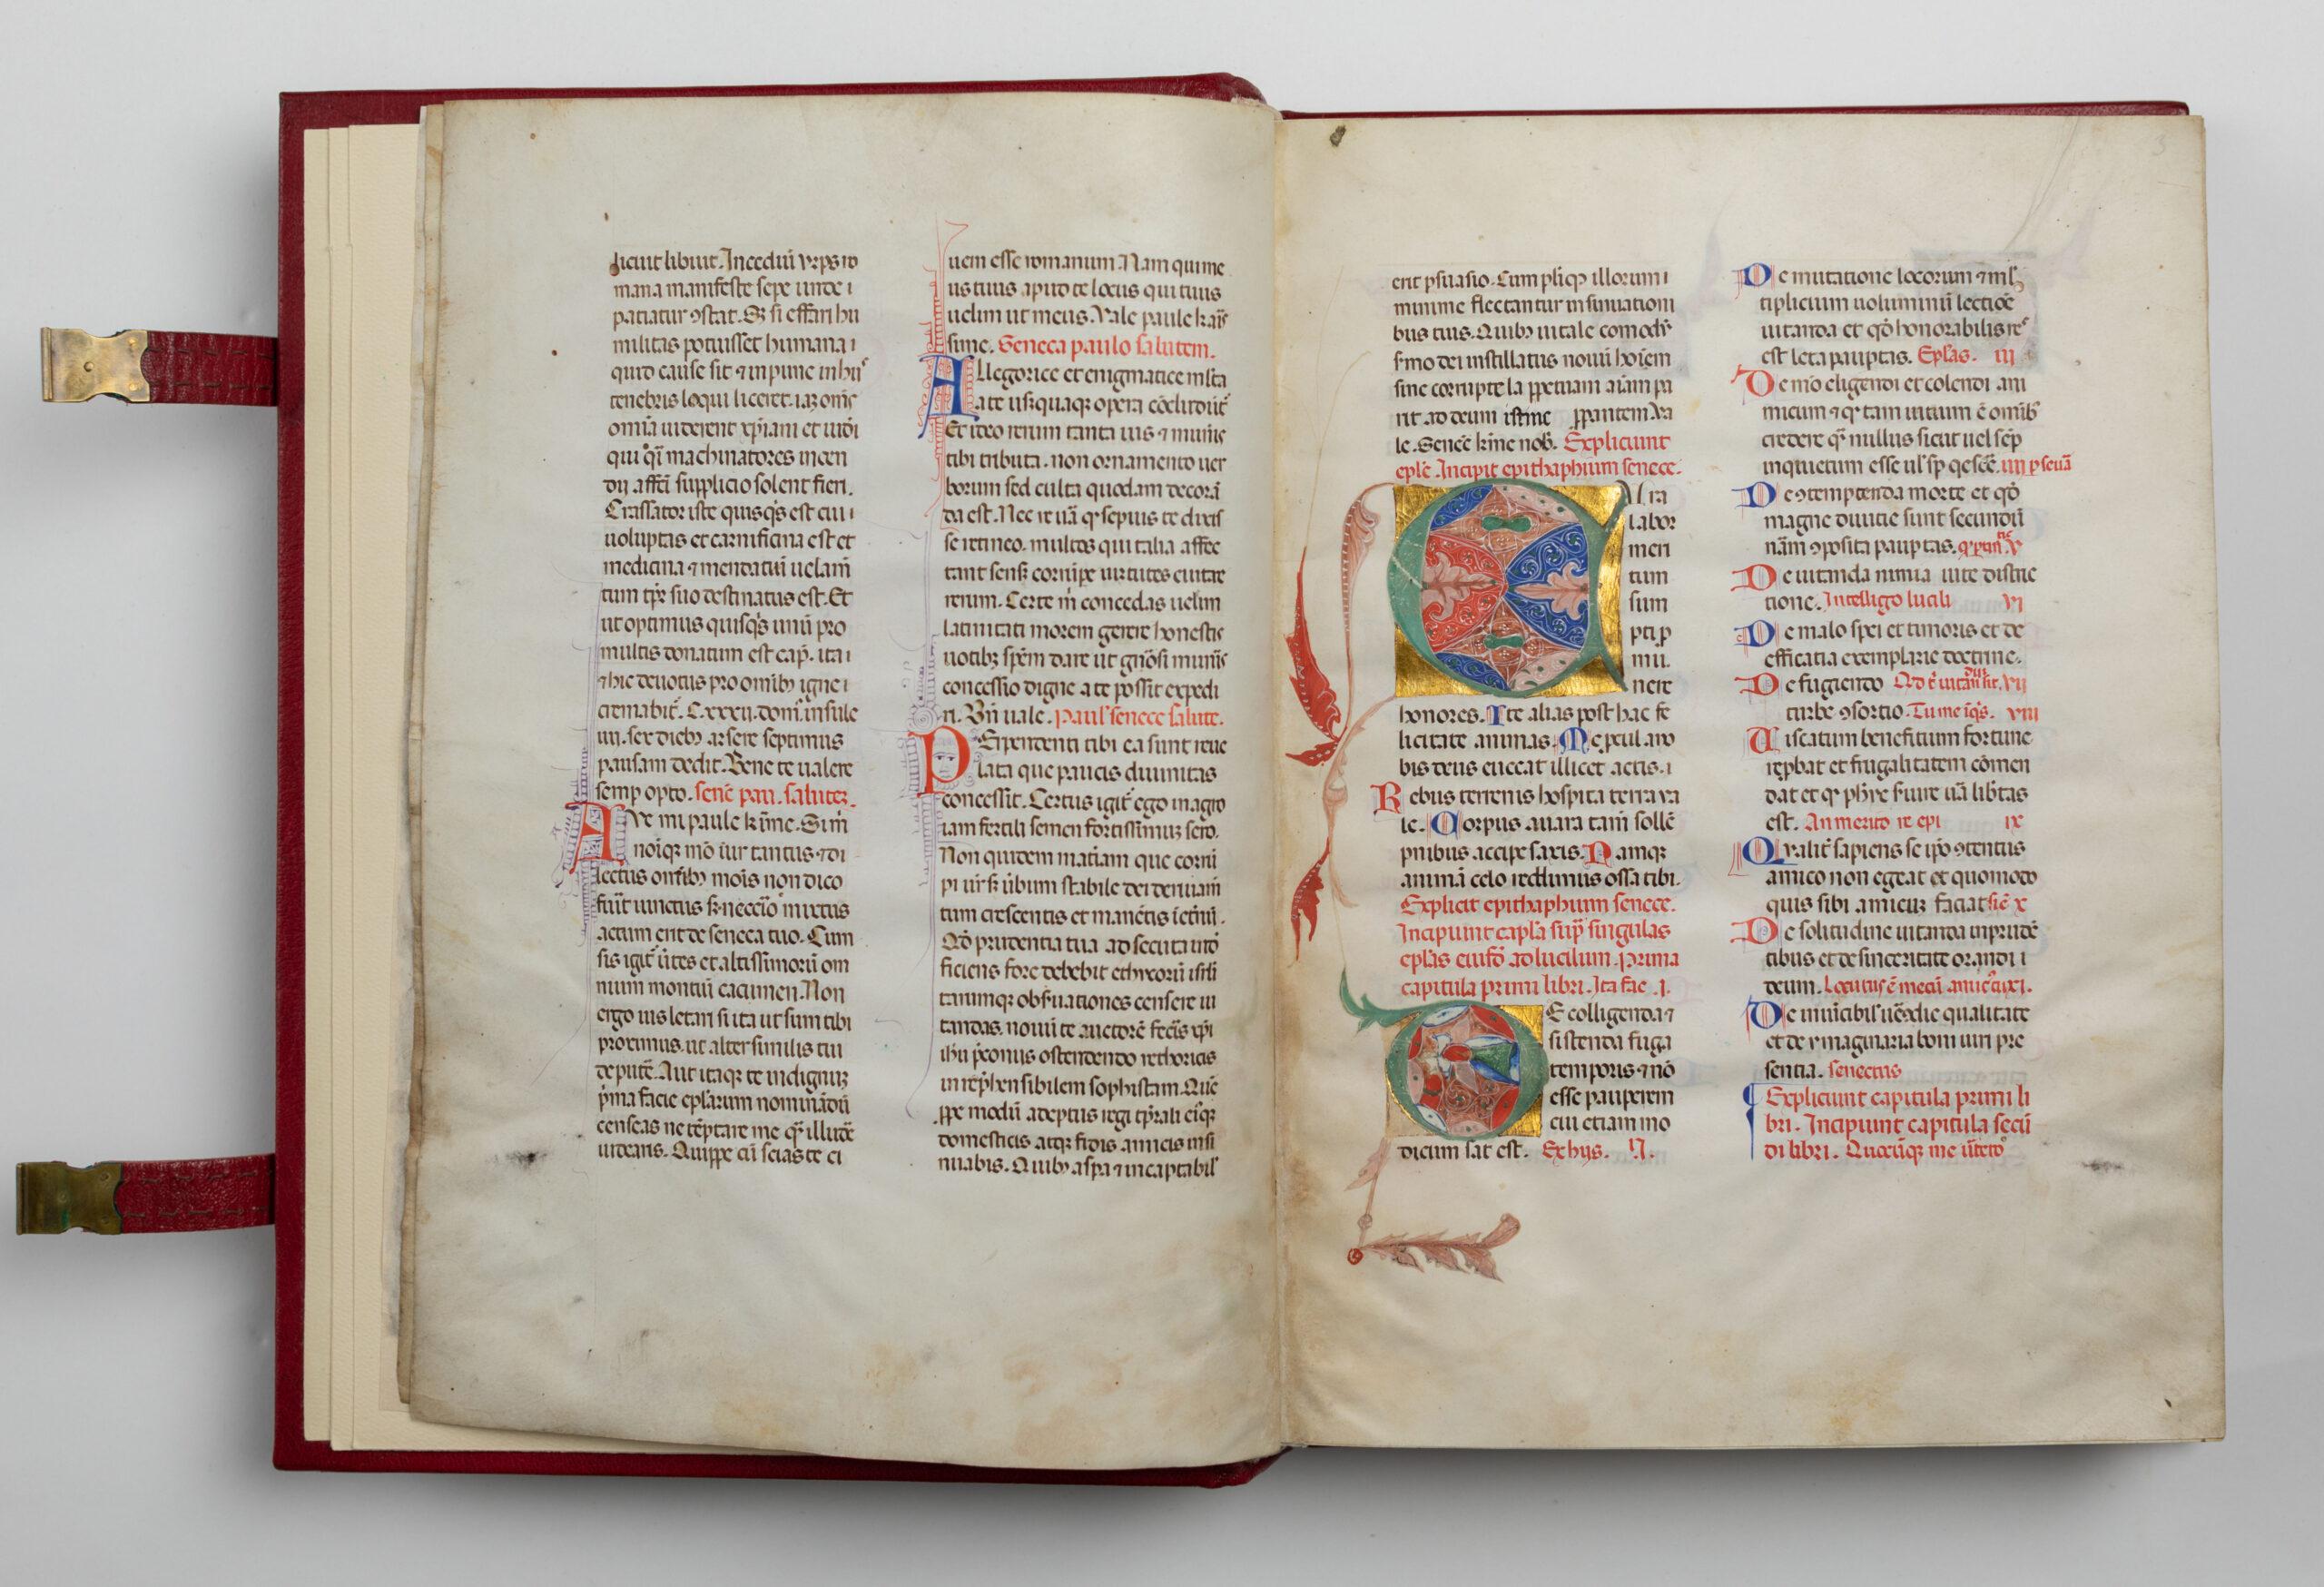 licuit libuit. Incediũ vrps ro
mana manifeste sepe unde i
patiatur ꝯstat. Sꝫ si effari hu
militas potuisset humana i
quid cause sit ⁊ inpune in hiis
tenebris loqui liceret. iaꝫ oms
omia uiderent xp̃iani et iudi
qui qi machinatores incen
dij affc̃i supplicio solent fieri.
Crassator iste quisq̃s est cui i
uoluptas et carnificina est et
medicina ⁊ mendatiũ uelam̃
tum tp̃e suo destinatus est. Et
ut optimus quisq̃s unũ pro
multis donatum est cap̃. ita i
⁊ hic deuotus pro omĩbꝫ igne i
cremabit̃. C.xxxij. dom̃. insule
iiij. sex diebꝫ arsere septimus
pausam dedit. Bene te ualere
semp opto. senẽ pau. salutez.
Aue mi paule kr̃me. Sim̃
noĩqꝫ mõ iur tantus ⁊ di
lectus om̃ibꝫ mois non dico
fũit iunctus sꝫ necc̃io mixtus
actum erit de seneca tuo. Cum
sis igit̃ ũtes et altissimorũ om
nium montiũ cacumen. Non
ergo uis letari si ita ut sum tibi
proximus. ut alter similis tui
deputẽ. Aut itaqꝫ te indignuꝫ
p̃ma facie ep̃larum nominãdũ
censeas ne tẽptare me qꝫ illudẽ
uideans. Quippe cũ scias te ci
uem esse romanum. Nam qui me
us tuus apud te locus qui tuus
uelim ut meus. Vale paule kar̃is
sime. Seneca paulo salutem.
Allegorice et enigmatice ml̃ta
a te usqꝫquaqꝫ opera cõcludũt̃
Et ideo rerum tanta uis ⁊ munis
tibi tributa. non ornamento uer
borum sed culta quodam decorã
da est. Nec te uã qꝫ sepius te dixis
se retineo. multos qui talia affec
tant sensꝫ corrũpe uirtutes euitare
rerum. Certe m̃ concedas uelim
latinitati morem gerere honestis
uotibꝫ spẽm dare ut gñosi munĩs
concessio digne a te possit expedi
ri. Bñ uale. Paul' senece salute.
Perpendenti tibi ea sunt reue
lata que paucis diuinitas
concessit. Certus igit̃ ego in agro
iam fertili semen fortissimuꝫ sero.
Non quidem matiam que corrũ
pi uir̃ sꝫ ũbum stabile dei deriuam̃
tum crescentis et manẽtis ĩet̃nũ.
Qd̃ prudentia tua adsecuta udõ
ficiens fore debebit ethicorũ isrl̃i
tarumqꝫ obsuationes censere ui
tandas. nouũ te auctorẽ fecĩs xp̃i
ih̃u p̃conijs ostendendo rethoricis
inrep̃hensibilem sophistam. Quẽ
ppe modũ adeptus regi tp̃rali eĩqꝫ
domesticis atqꝫ fidis amicis insi
nuabis. Quibꝫ asp̃a ⁊ incaptabil'
erit p̃suasio. Cum pliqꝫ illorum i
minime flectantur insinuationi
bus tuis. Quibꝫ uitale comodũ
s̃mo dei instillatus nouũ hoĩem
sine corruptela ppetuam aĩam pa
rit ad deum istinc pparantem. Va
le. Senẽc kr̃me nob̃. Expliciunt
ep̃le. Incipit epithaphium senece.
Cura
labor
meri
tum
sum
pti p
mu.
nere
honores. Ite alias post hac so
licitate animas. Me pcul a uo
bis deus euocat illicet actis. i
Rebus terrenis hospita terra va
le. Corpus auara tam̃ sollẽ
pnibus accipe saxis. Namqꝫ
animã celo reddimus ossa tibi.
Explicit epithaphium senece.
Incipiunt cap̃la sup̃ singulas
ep̃las eiusd̃ ad lucilum. Prima
capitula primi libri. Ita fac .i.
De colligenda ⁊
sistenda fuga
temporis ⁊ nõ
esse pauperem
cui etiam mo
dicum sat est. Ex hijs. ij.
De mutatione locorum ⁊ ml̃
tiplicium uoluminũ lectiõe
uitanda et qd̃ honorabilis res
est leta pauptas. Ep̃las. iij
De mõ eligendi et colendi ami
micum ⁊ qꝫ tam uitium ẽ omĩbꝫ
credere qꝫ nullus sicut uel sẽp
inquietum esse ul' sp̃ qesc̃e. iiij pseuã
De ꝯtemptenda morte et qd̃
magne diuitie sunt secundũ
nãm ꝯposita pauptas. v
De uitanda nimia uite distric
tione. Intelligo lucili vi
De malo spei et timoris et de
efficatia exemplaris doctrine.
De fugiendo Qd̃ t̃ uitãdũ sit. vii
turbe ꝯsortio. Tu me ĩq̃s. viii
Uiscatum benefitium fortune
rep̃bat et frugalitatem cõmen
dat et qꝫ ph̃ye fuire uã lib̃tas
est. An merito re epi ix
Qualit̃ sapiens se ip̃o ꝯtentus
amico non egeat et quomodo
quis sibi amicuꝫ faciat sic x
De solitudine uitanda inprudẽ
tibus et de sinceritate orandi i
deum. Locutus ẽ mecũ amic xi.
De inuĩcibil' uẽcdie qualitate
et de ymaginaria boni uiri pre
sentia. senectus
Expliciunt capitula primi li
bri. Incipiunt capitula secũ
di libri. Quociẽqꝫ me ũteto